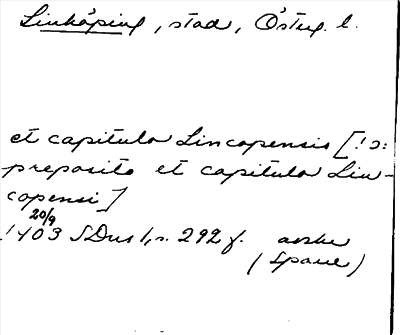 Linköping, stad, Östug. l.
et capitulo Lincopensis [!ɔ:
preposito et capitulo Lin-
copensi]
20/9
1403 SDns 1, s. 292 f. avskr
(Spaue)